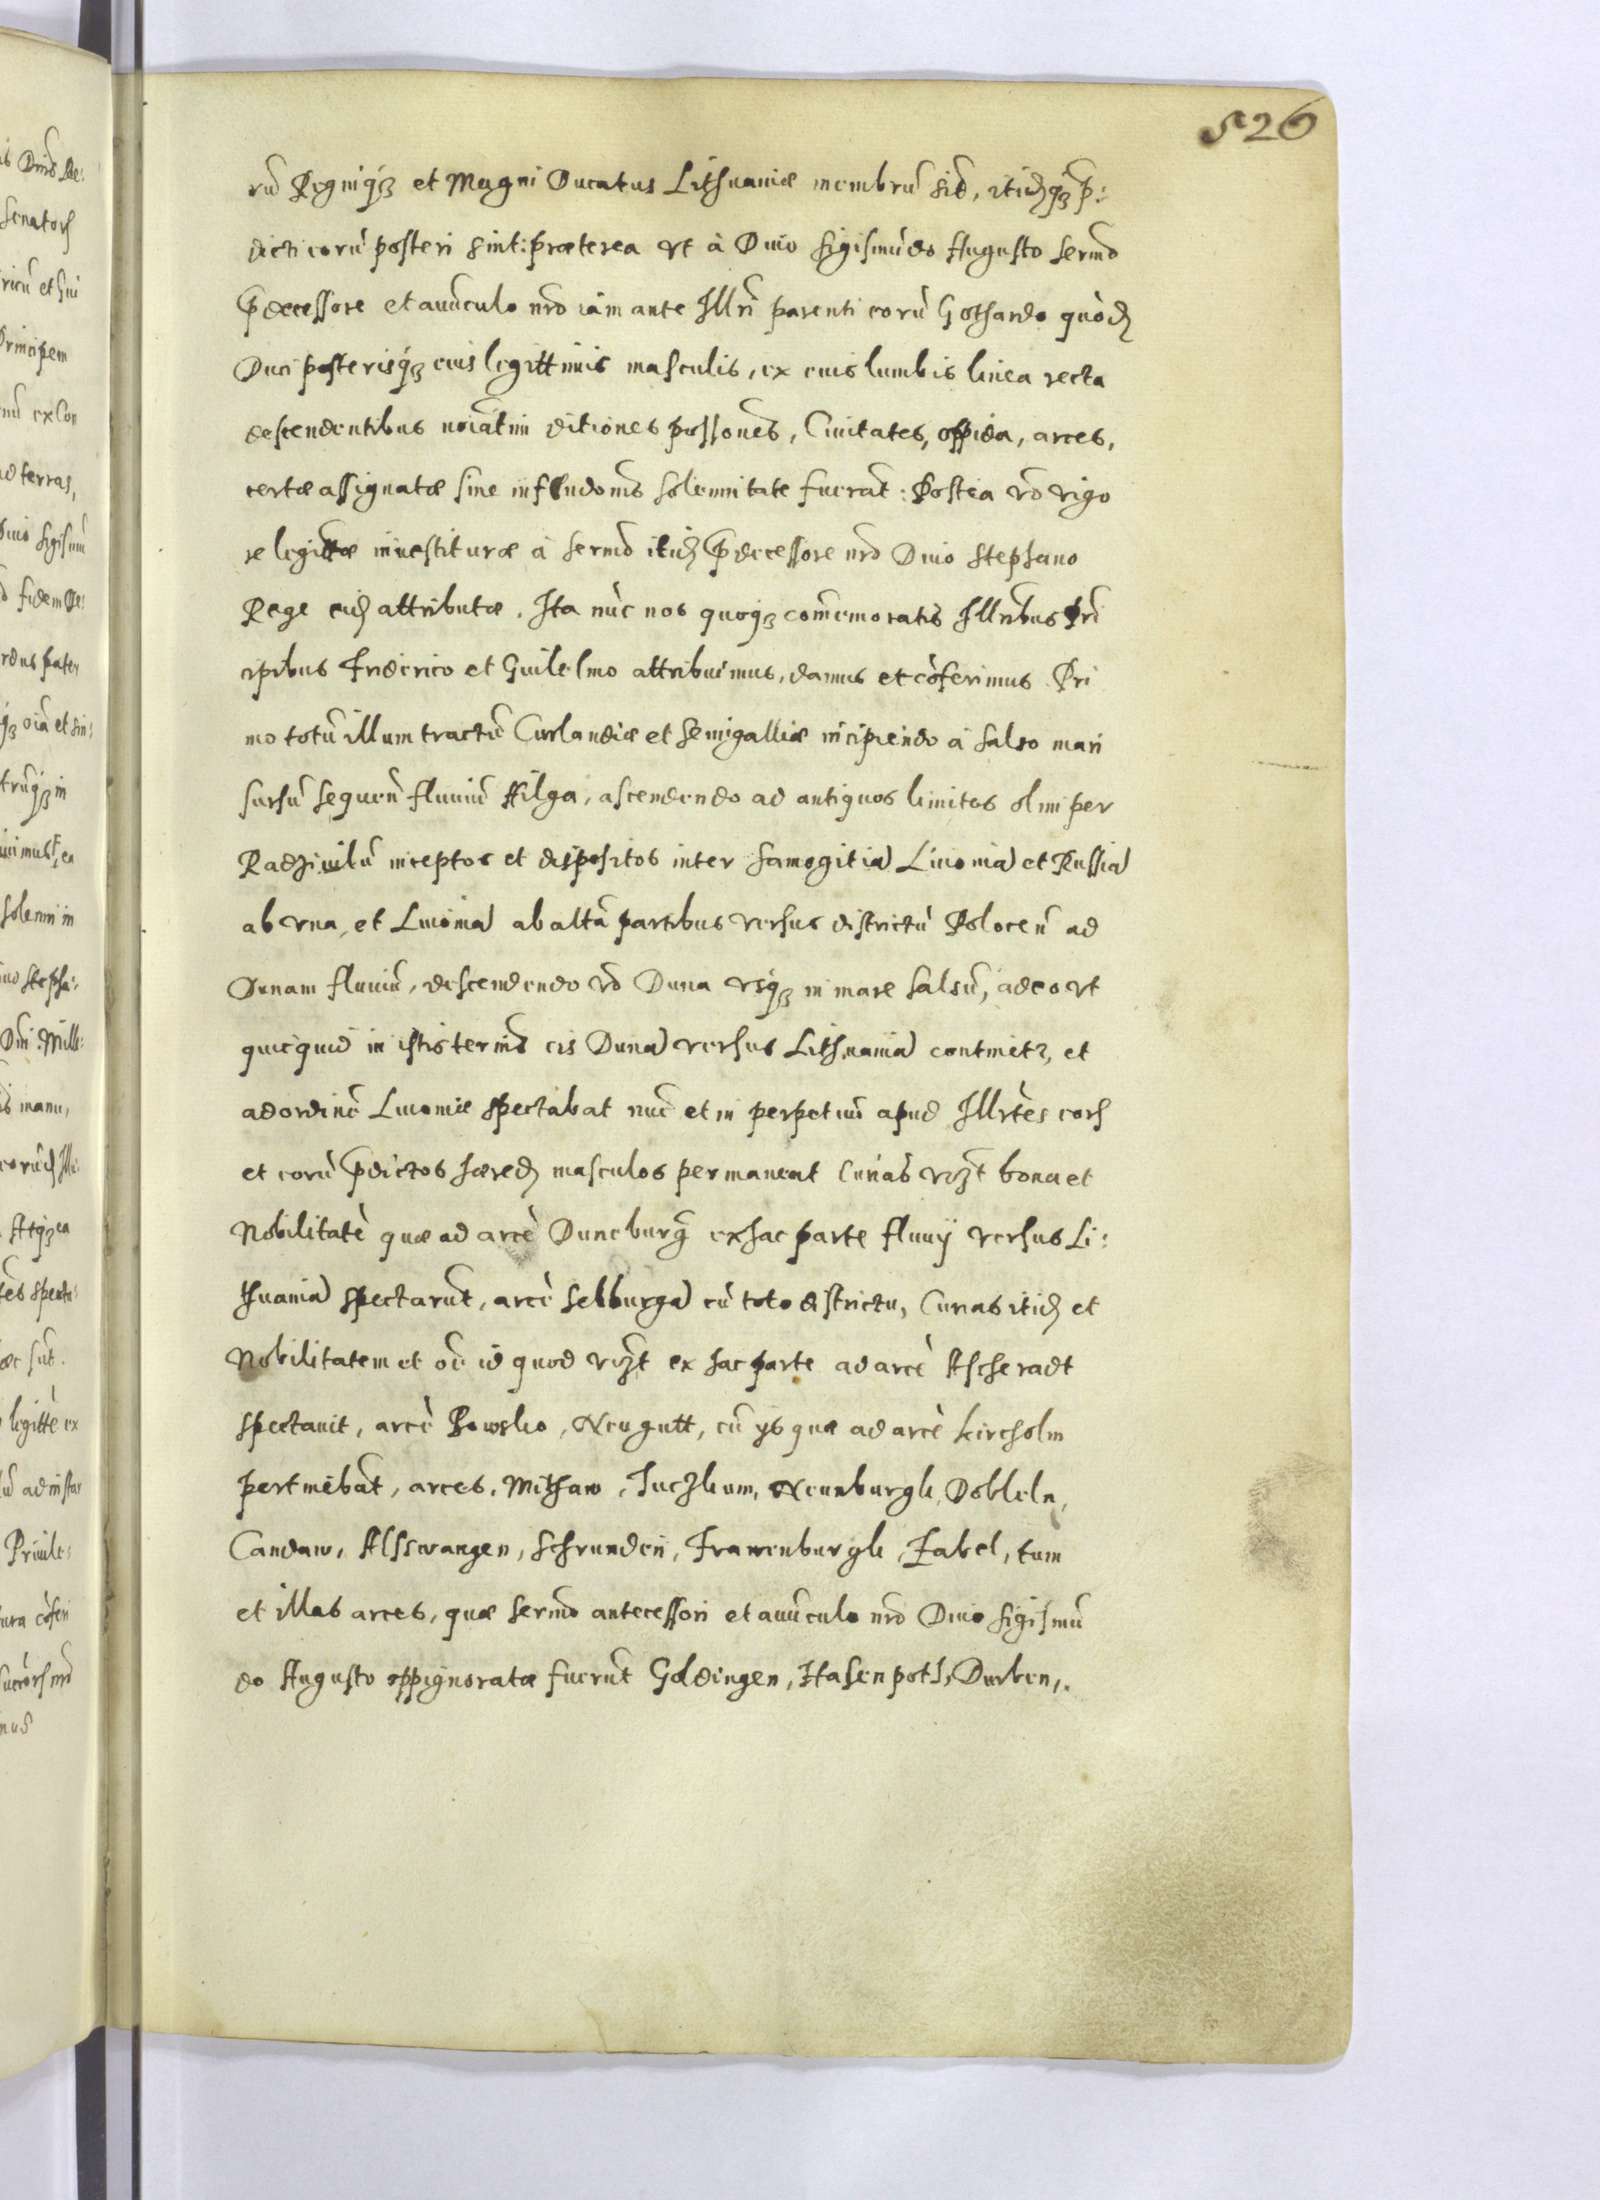 526
rũ Regniq́ꝫ et Magni Ducatus Lithuaniæ membrũ sit, itidẽqꝫ p̃:
dicti eorũ posteri sint: præterea vt à Diuo Sigismũdo Augusto Sermo
p̃decessore et auũculo nrõ iam ante Illri parenti eorũ Gothardo quõd
Duci posterisq́ꝫ eius legittimis masculis, ex eius lumbis linea recta
descendentibus noĩatim ditiones possones, Ciuitates, oppida, arces,
certæ assignatæ sine infeudonis solennitate fuerãt: Postea võ rigo
re legittæ inuestituræ à Sermo itidẽ p̃decessore nrõ Diuo Stephano
Rege eidẽ attributæ. Ita nũc nos quoqꝫ com̃emoratis Illribus Prĩ
cipibus Friderico et Guilelmo attribuimus, damus et cõferimus Pri
mo totũ illum tractũ Curlandiæ et Semigalliæ incipiendo à Salso mari
sursũ sequeñ fluuiũ Hilga, ascendendo ad antiquos limites olim per
Radziuilũ inceptos et dispositos inter Samogitiã Liuoniã et Russiã
ab vna, et Liuoniã ab altã partibus versus districtũ Poloceñ ad
Dunam fluuiũ, descendendo võ Duna vsq́ꝫ in mare Salsũ, adeo vt
quicquid in istis terinis cis Dunã versus Lithuaniã continetr, et
ad ordinẽ Liuoniæ spectabat nũc et in perpetuũ apud Illrtes eorũ
et eorũ p̃dictos hæredẽ masculos permaneat Curias vizt bona et
Nobilitatẽ quæ ad arcẽ Duneburg ex hac parte fluuij versus Li:
thuaniã spectarũt, arcẽ Selburgã cũ toto districtu, Curias itidẽ et
Nobilitatem et oẽ id quod vizt ex hac parte ad arcẽ Ascheradt
spectauit, arcẽ Bowsko, Neugutt, cũ ijs quæ ad arcẽ Kircholm
pertinebãt, arces, Mithaw, Tuczkum, Neunburgk, Dobleln,
Candaw, Alsswangen, Schrunden, Frawenburgk, Zabel, tum
et illas arces, quæ Sermo antecessori et auũculo nrõ Diuo Sigismũ
do Augusto oppignoratæ fuerũt Goldingen, Hasenpoth, Durben,.